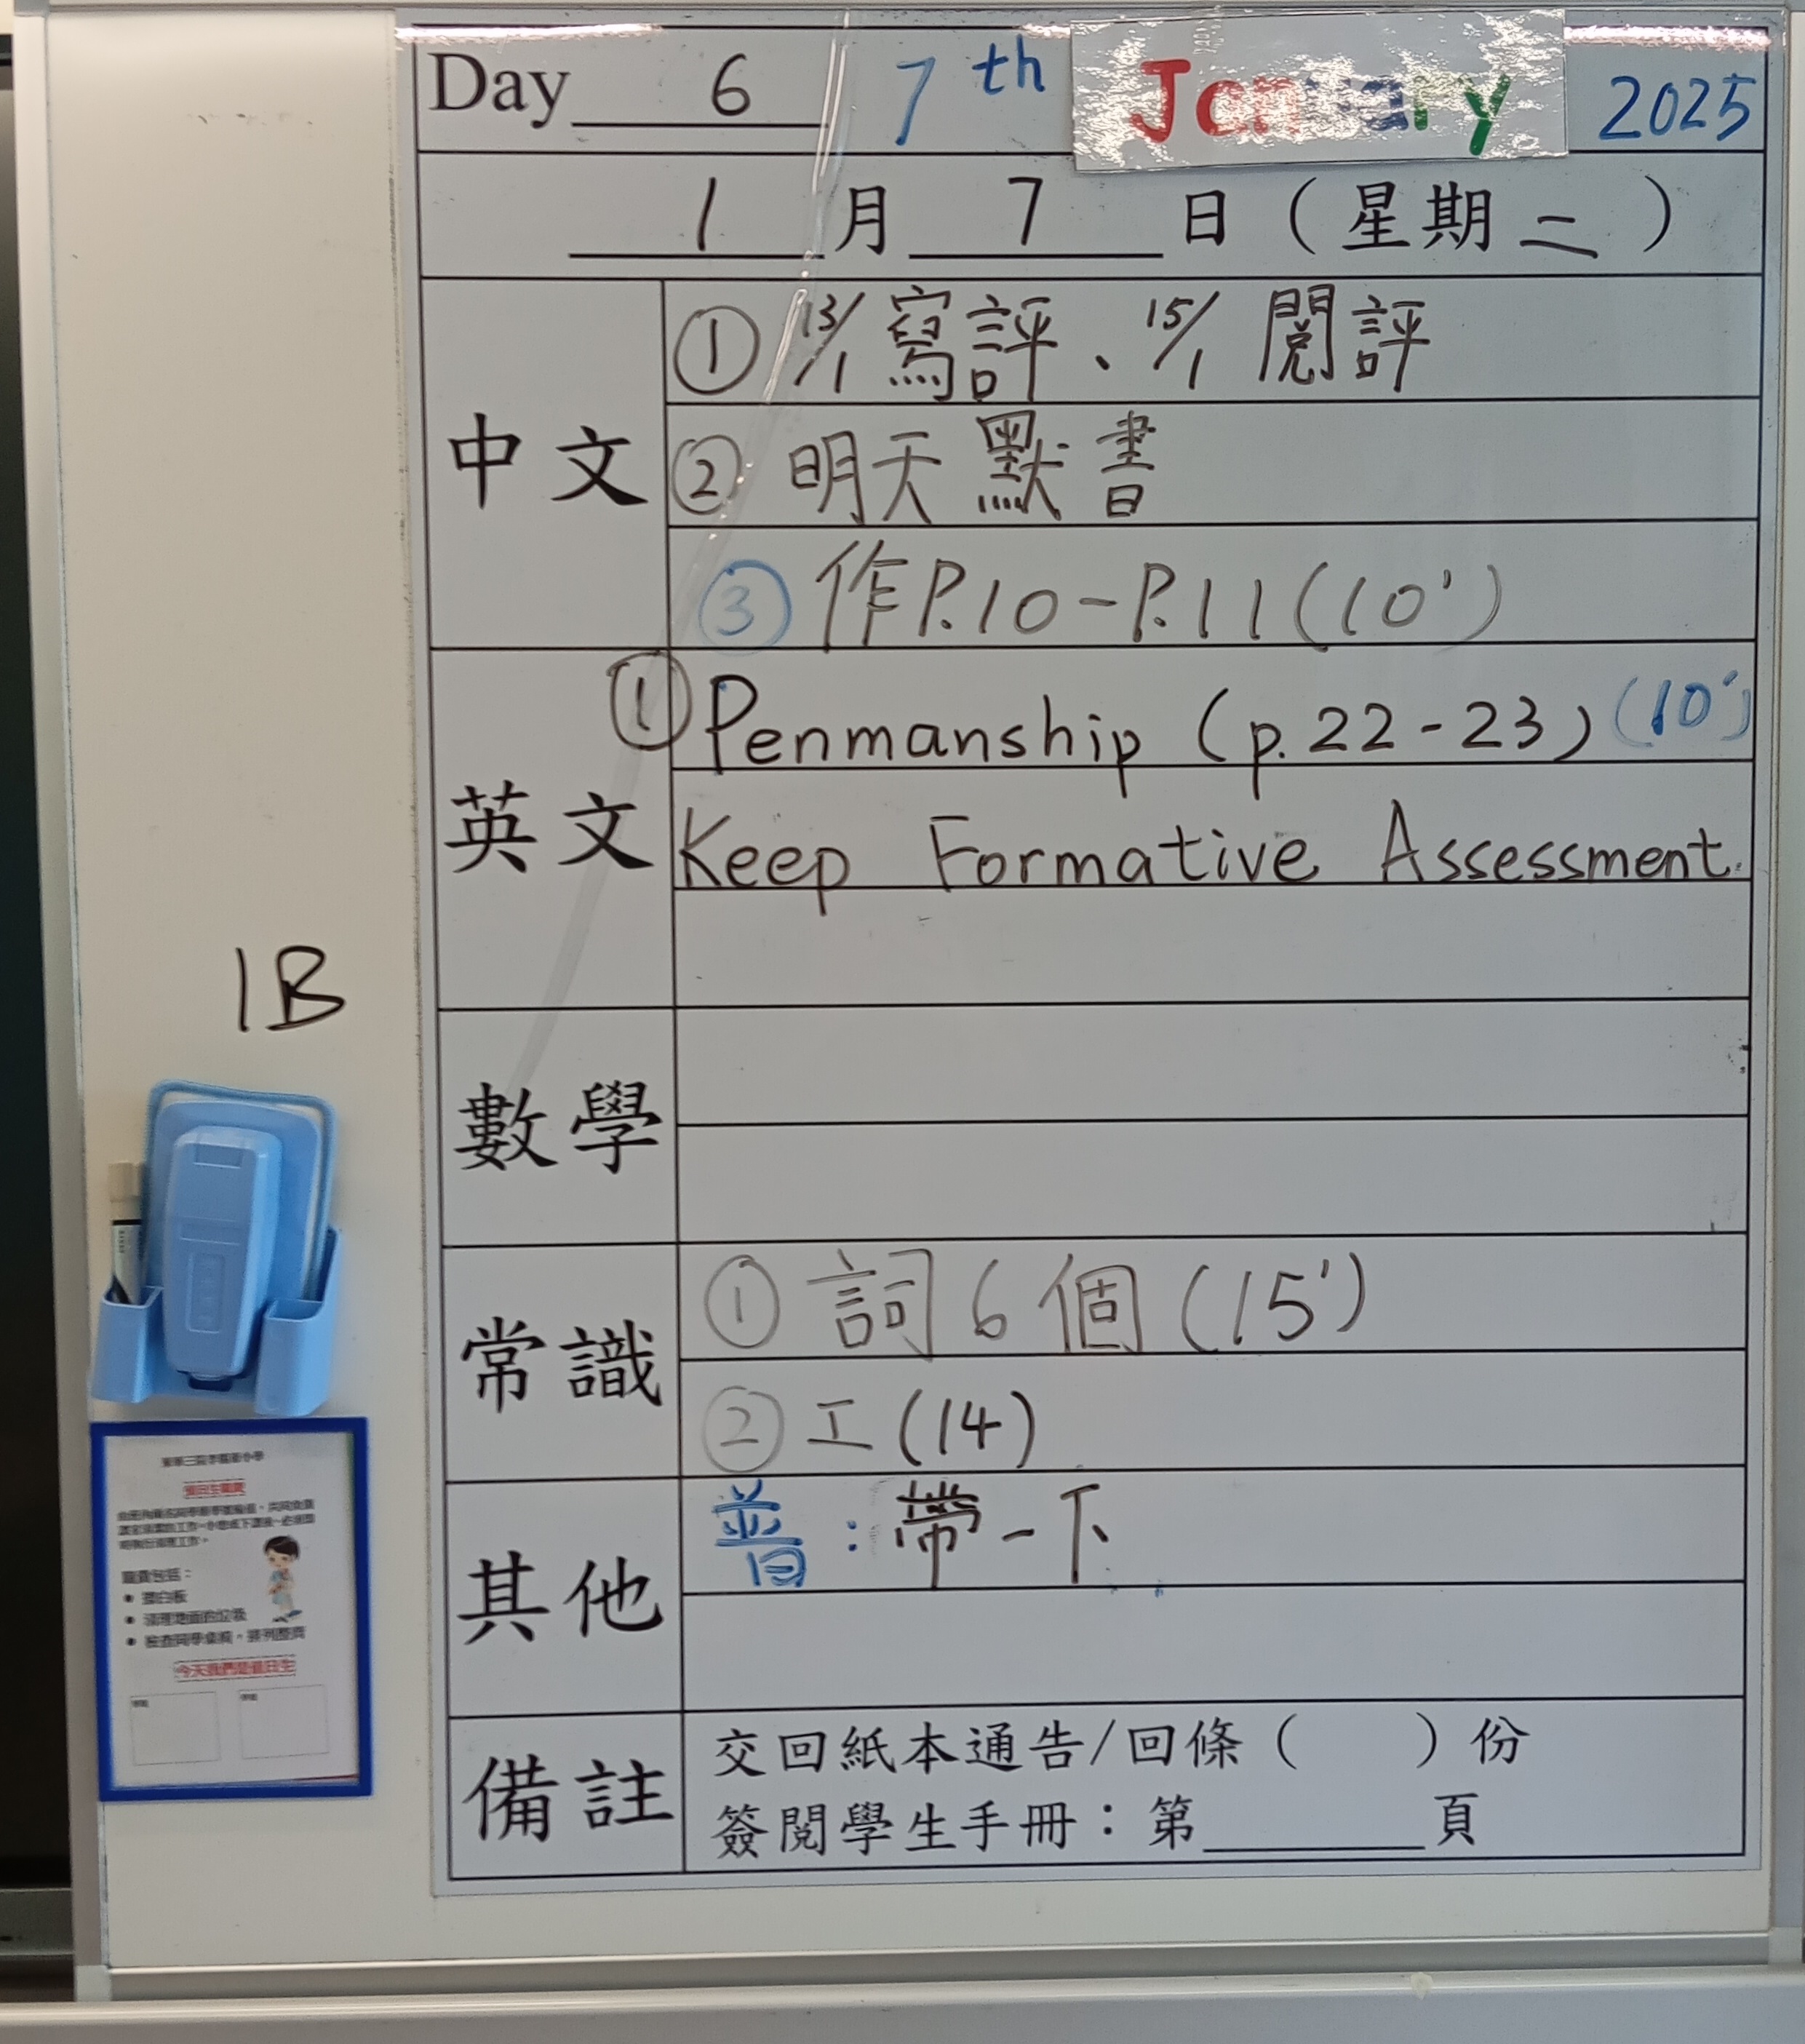 Day 6 7th January 2025
1月7日(星期二)
中文
① 13/1 寫評、15/1 閱評
② 明天默書
③ 作P.10-P.11(10')
英文
① Penmanship (p.22-23) (10')
Keep Formative Assessment.
數學
1B
常識
① 詞6個(15')
② 工(14)
其他
普:帶一下
備註
交回紙本通告/回條( )份
簽閱學生手冊:第______頁
值日生職責
職責包括:
● 擦白板
● 清理地面的垃圾
今天我們是值日生